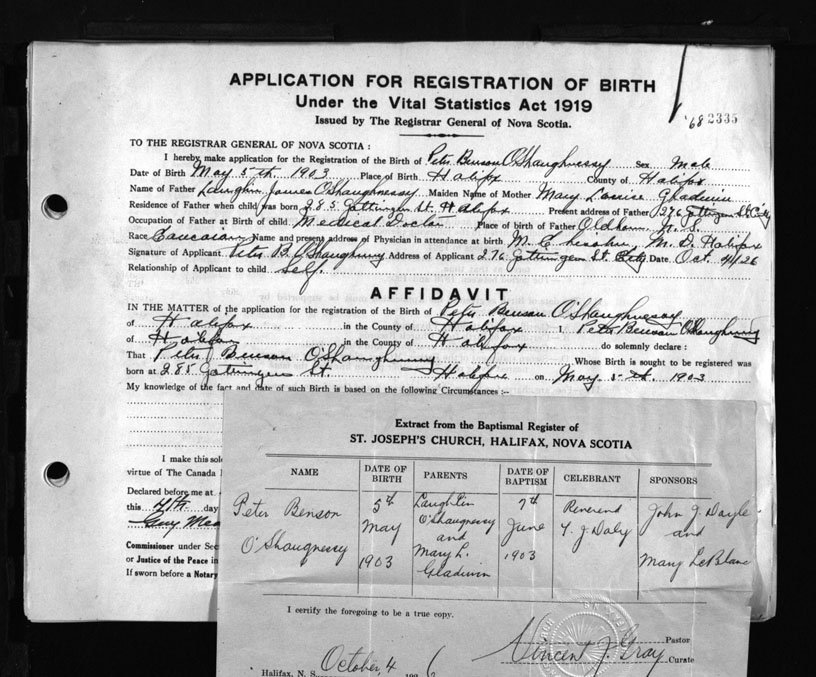 APPLICATION FOR REGISTRATION OF BIRTH
Under the Vital Statistics Act 1919
Issued by The Registrar General of Nova Scotia.
'68 2335
TO THE REGISTRAR GENERAL OF NOVA SCOTIA :
I hereby make application for the Registration of the Birth of Peter Benson O'Shaughnessy Sex Male
Date of Birth May 5th 1903 Place of Birth Halifax County of Halifax
Name of Father James O'Shaughnessy Maiden Name of Mother Mary Louise Gladwin
Residence of Father when child was born 285 Gottingen St Halifax Present address of Father 276 Gottingen St City
Occupation of Father at Birth of child Medical Doctor Place of birth of Father Oldham, N.S.
Race Caucasian Name and present address of Physician in attendance at birth M. M.D. Halifax
Signature of Applicant Peter B. O'Shaughnessy Address of Applicant 276 Gottingen St City Date Oct 4/26
Relationship of Applicant to child self.
AFFIDAVIT
IN THE MATTER of the application for the registration of the Birth of Peter Benson O'Shaughnessy
of Halifax in the County of Halifax I, Peter Benson O'Shaughnessy
of Halifax in the County of Halifax do solemnly declare :
That Peter Benson O'Shaughnessy Whose Birth is sought to be registered was
born at 285 Gottingen St. Halifax on May 5th. 1903
My knowledge of the fact and date of such Birth is based on the following Circumstances :-
I make this sol
virtue of The Canada
Declared before me at
this 4th day
Guy
Commissioner under Sec
or Justice of the Peace in
If sworn before a Notary
Extract from the Baptismal Register of
ST. JOSEPH'S CHURCH, HALIFAX, NOVA SCOTIA
NAME DATE OF BIRTH PARENTS DATE OF BAPTISM CELEBRANT SPONSORS
Peter Benson 5th Laughlin 7th Reverend John J. Doyle
O'Shaugnessy May O'Shaugnessy June T. J. Daly and
1903 and 1903 Mary LeBlanc
Mary L.
Gladwin
I certify the foregoing to be a true copy.
Vincent J. Gray Pastor
Curate
Halifax, N. S. October 4 1926